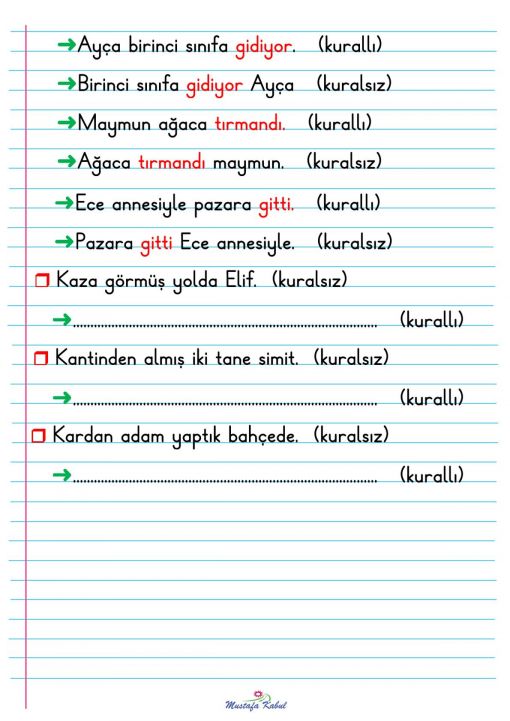 ➜Ayça birinci sınıfa gidiyor. (kurallı)
➜Birinci sınıfa gidiyor Ayça (kuralsız)
➜Maymun ağaca tırmandı. (kurallı)
➜Ağaca tırmandı maymun. (kuralsız)
➜Ece annesiyle pazara gitti. (kurallı)
➜Pazara gitti Ece annesiyle. (kuralsız)
❒ Kaza görmüş yolda Elif. (kuralsız)
➜........................................................................................ (kurallı)
❒ Kantinden almış iki tane simit. (kuralsız)
➜........................................................................................ (kurallı)
❒ Kardan adam yaptık bahçede. (kuralsız)
➜........................................................................................ (kurallı)
Mustafa Kabul